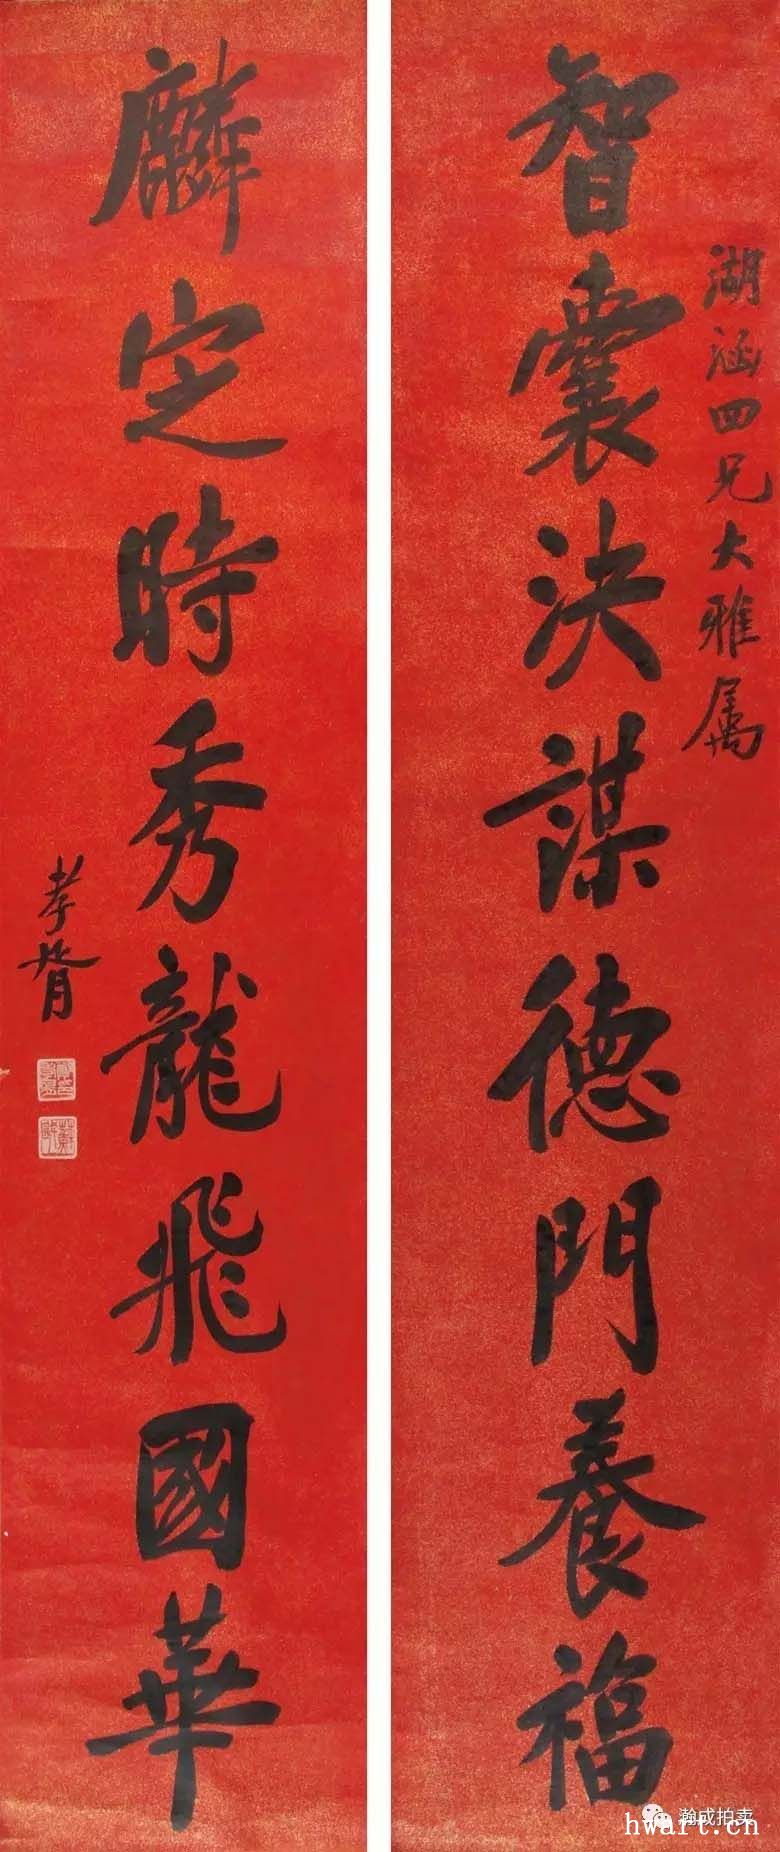 智囊決謀德門養福
湖涵四兄大雅属
麟定時秀龍飛國華
孝胥
瀚成拍卖
hwart.cn